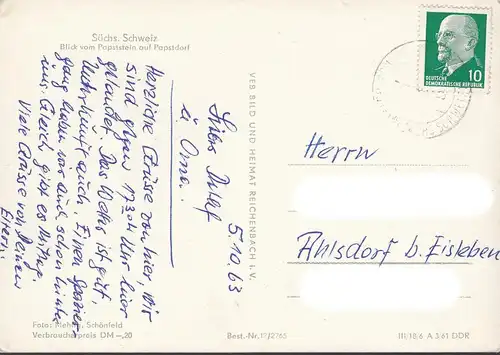 Sächs. Schweiz
Blick vom Papststein auf Papstdorf
5.10.63
Lieber
u. Oma.
Herzliche Grüsse von hier, wir
sind gegen 17 30 Uhr hier
gelandet. Das Wetter ist gut,
Unterkunft auch. Einen Spazier-
gang haben wir auch schon hinter
uns. Gleich gibt es Mittag.
Viele Grüsse von Deinen
Eltern.
Foto: Schönfeld
Verbraucherpreis DM -,20
VEB BILD UND HEIMAT REICHENBACH i. V.
Best.-Nr. 17/2765
DEUTSCHE
DEMOKRATISCHE REPUBLIK
10
Herrn
Ahlsdorf b. Eisleben
III/18/6 A 3/61 DDR